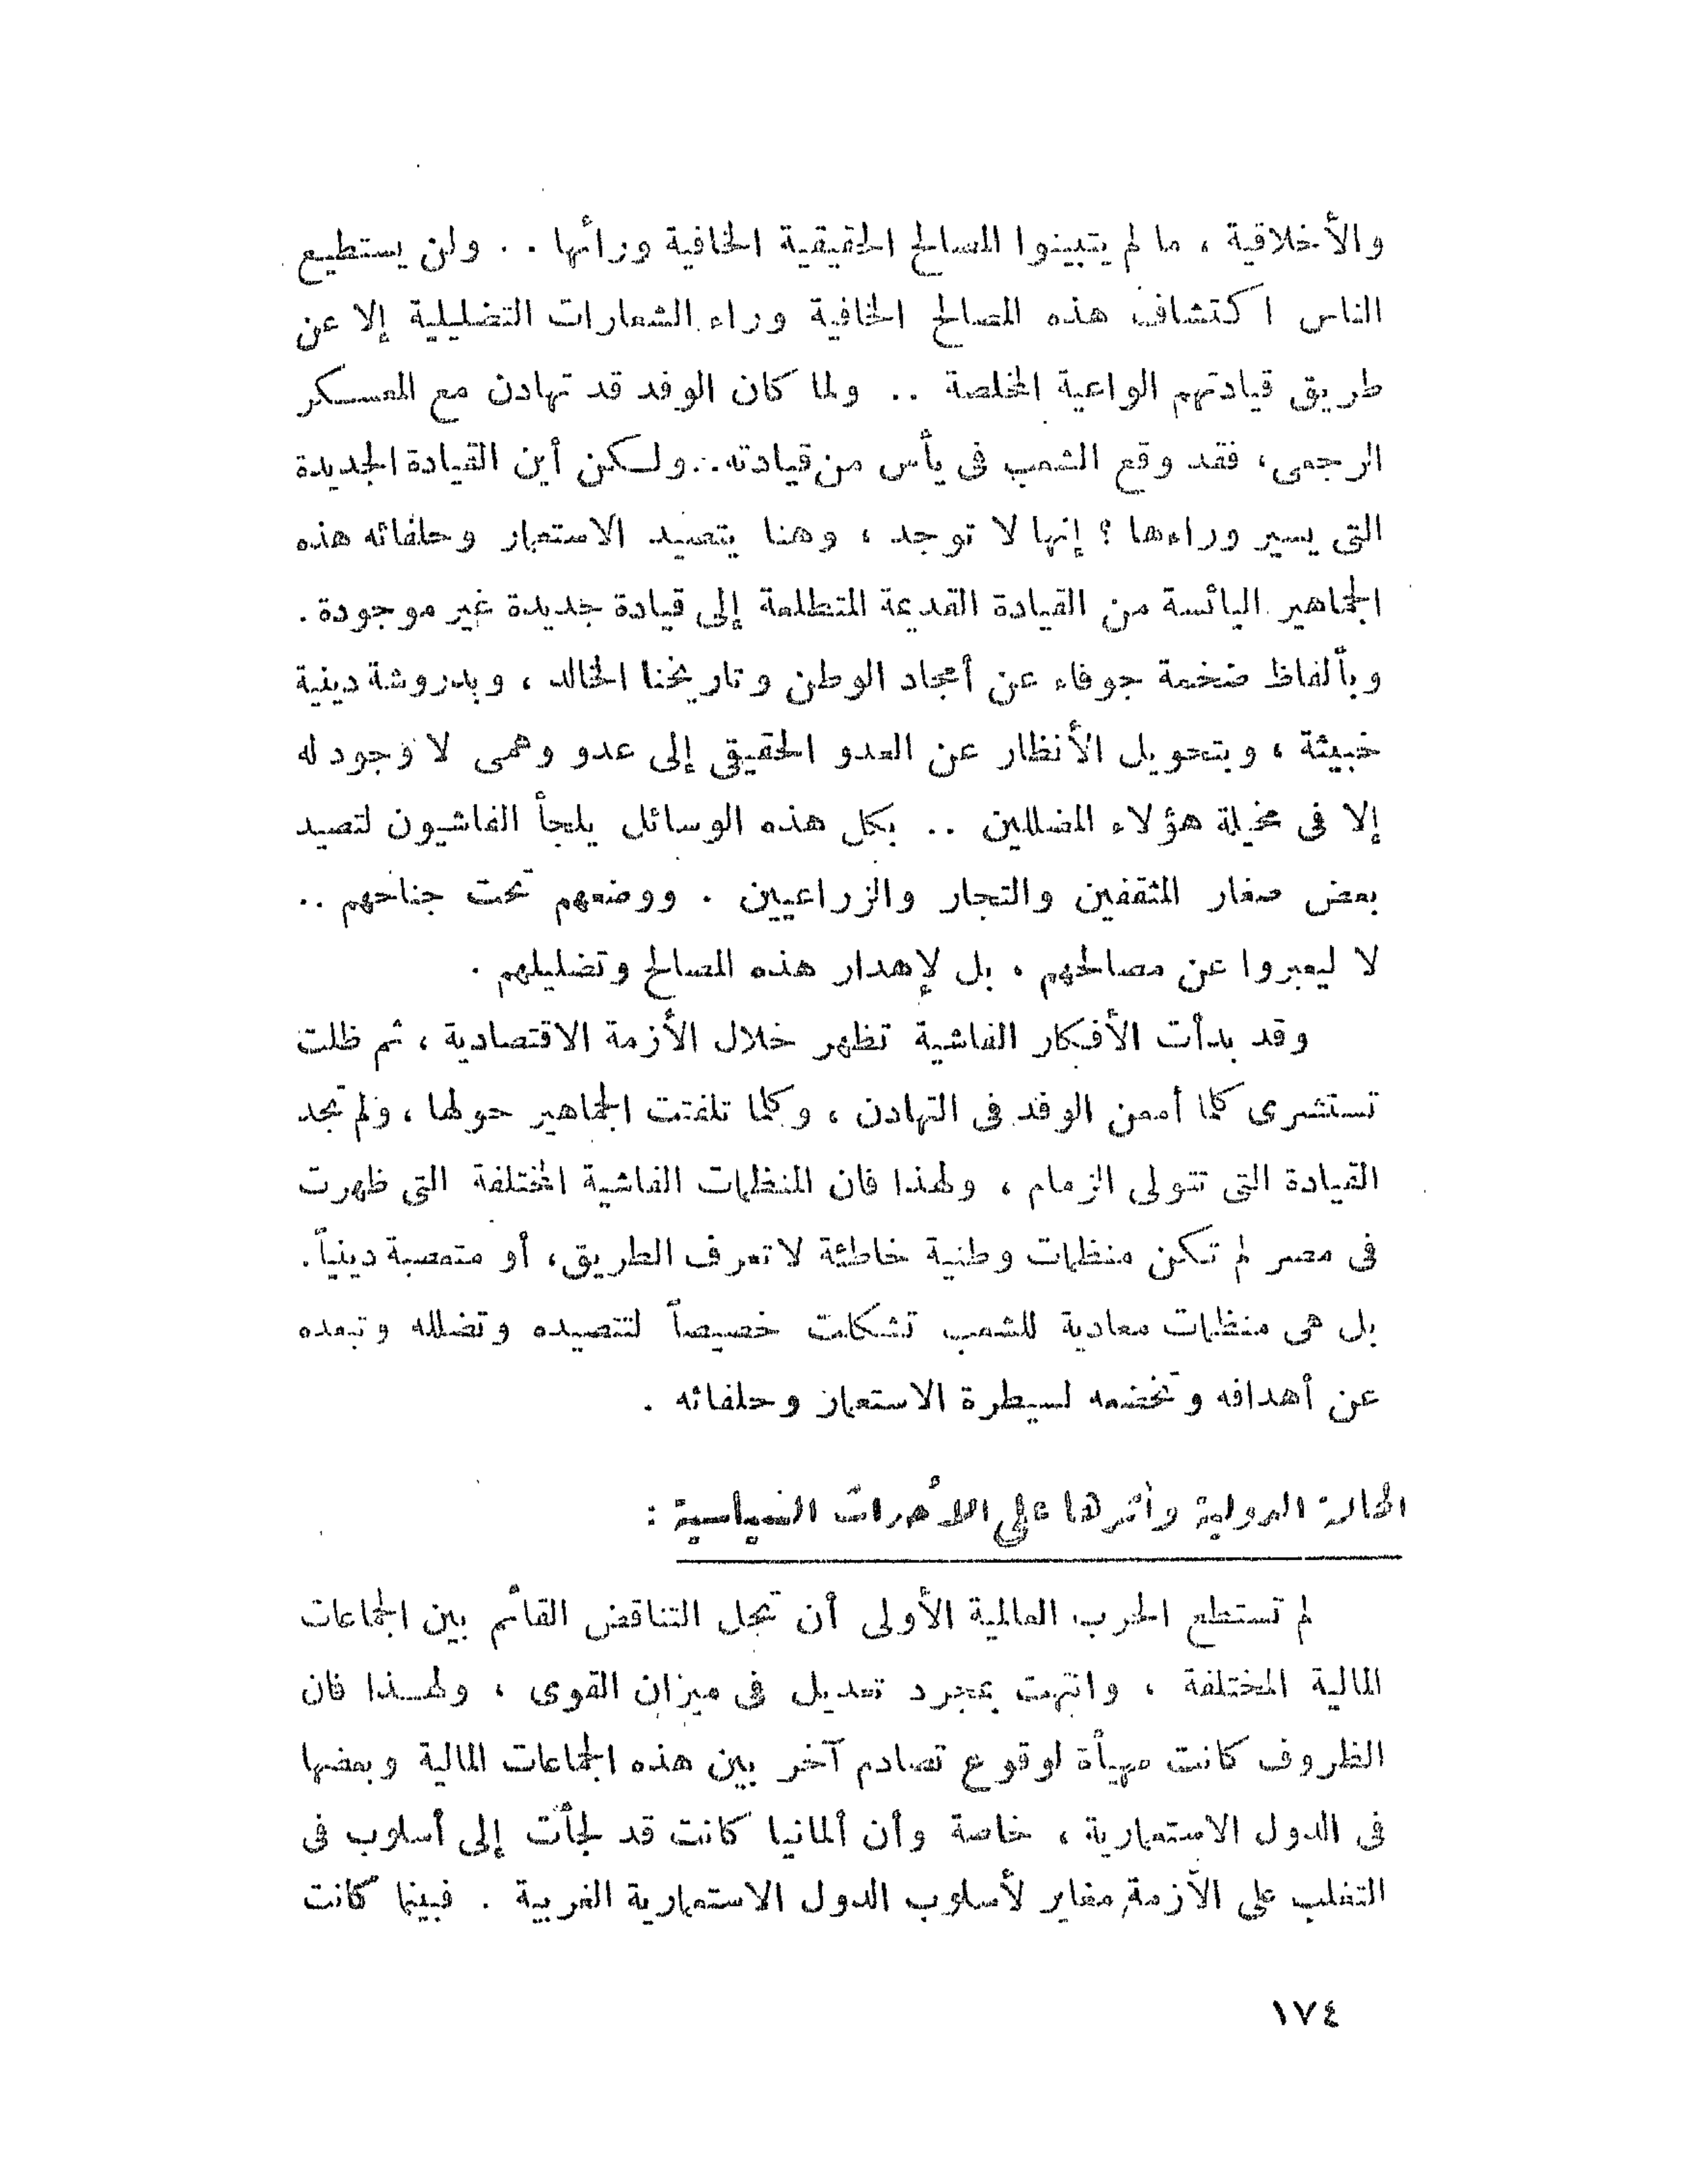 والأخلاقية ، ما لم يتبينوا المصالح الحقيقية الخافية ورائها . . ولن يستطيع
الناس اكتشاف هذه المصالح الخافية وراء الشعارات التضليلية إلا عن
طريق قيادتهم الواعية المخلصة .. ولما كان الوفد قد تهادن مع المعسكر
الرجعى، فقد وقع الشعب فى يأس من قيادته.. ولكن أين القيادة الجديدة
التى يسير وراءها ؟ إنها لا توجد ، وهنا يتصيد الاستعمار وحلفائه هذه
الجماهير اليائسة من القيادة القديمة المتطلعة إلى قيادة جديدة غير موجودة .
وبألفاظ ضخمة جوفاء عن أمجاد الوطن وتاريخنا الخالد ، وبدروشة دينية
خبيثة ، وبتحويل الأنظار عن العدو الحقيقى إلى عدو وهمى لا وجود له
إلا فى مخيلة هؤلاء المضللين .. بكل هذه الوسائل يلجأ الفاشيون لتصيد
بعض صغار المثقفين والتجار والزراعيين . ووضعهم تحت جناحهم ..
لا ليعبروا عن مصالحهم ، بل لإهدار هذه المصالح وتضليلهم .
وقد بدأت الأفكار الفاشية تظهر خلال الأزمة الاقتصادية ، ثم ظلت
تستشرى كلما أمعن الوفد فى التهادن ، وكلما تلفتت الجماهير حولها ، ولم تجد
القيادة التى تتولى الزمام ، ولهذا فان المنظمات الفاشية المختلفة التى ظهرت
فى مصر لم تكن منظمات وطنية خاطئة لا تعرف الطريق، أو متعصبة دينياً.
بل هى منظمات معادية للشعب تشكلت خصيصاً لتتصيده وتضلله وتبعده
عن أهدافه وتخضعه لسيطرة الاستعمار وحلفائه .
الحالة الدولية وأثرها على الأحداث السياسية :
لم تستطع الحرب العالمية الأولى أن تحل التناقض القائم بين الجماعات
المالية المختلفة ، وانتهت بمجرد تعديل فى ميزان القوى ، ولهذا فان
الظروف كانت مهيأة لوقوع تصادم آخر بين هذه الجماعات المالية وبعضها
فى الدول الاستعمارية ، خاصة وأن ألمانيا كانت قد لجأت إلى أسلوب فى
التغلب على الأزمة مغاير لأسلوب الدول الاستعمارية الغربية . فبينما كانت
١٧٤